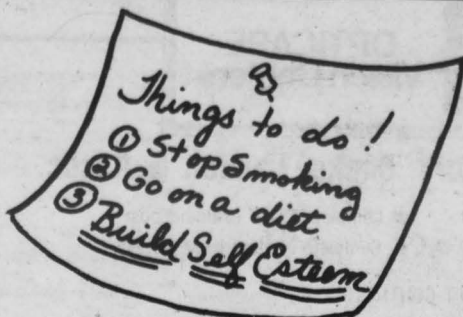 Things to do!
① Stop Smoking
② Go on a diet
③ Build Self Esteem